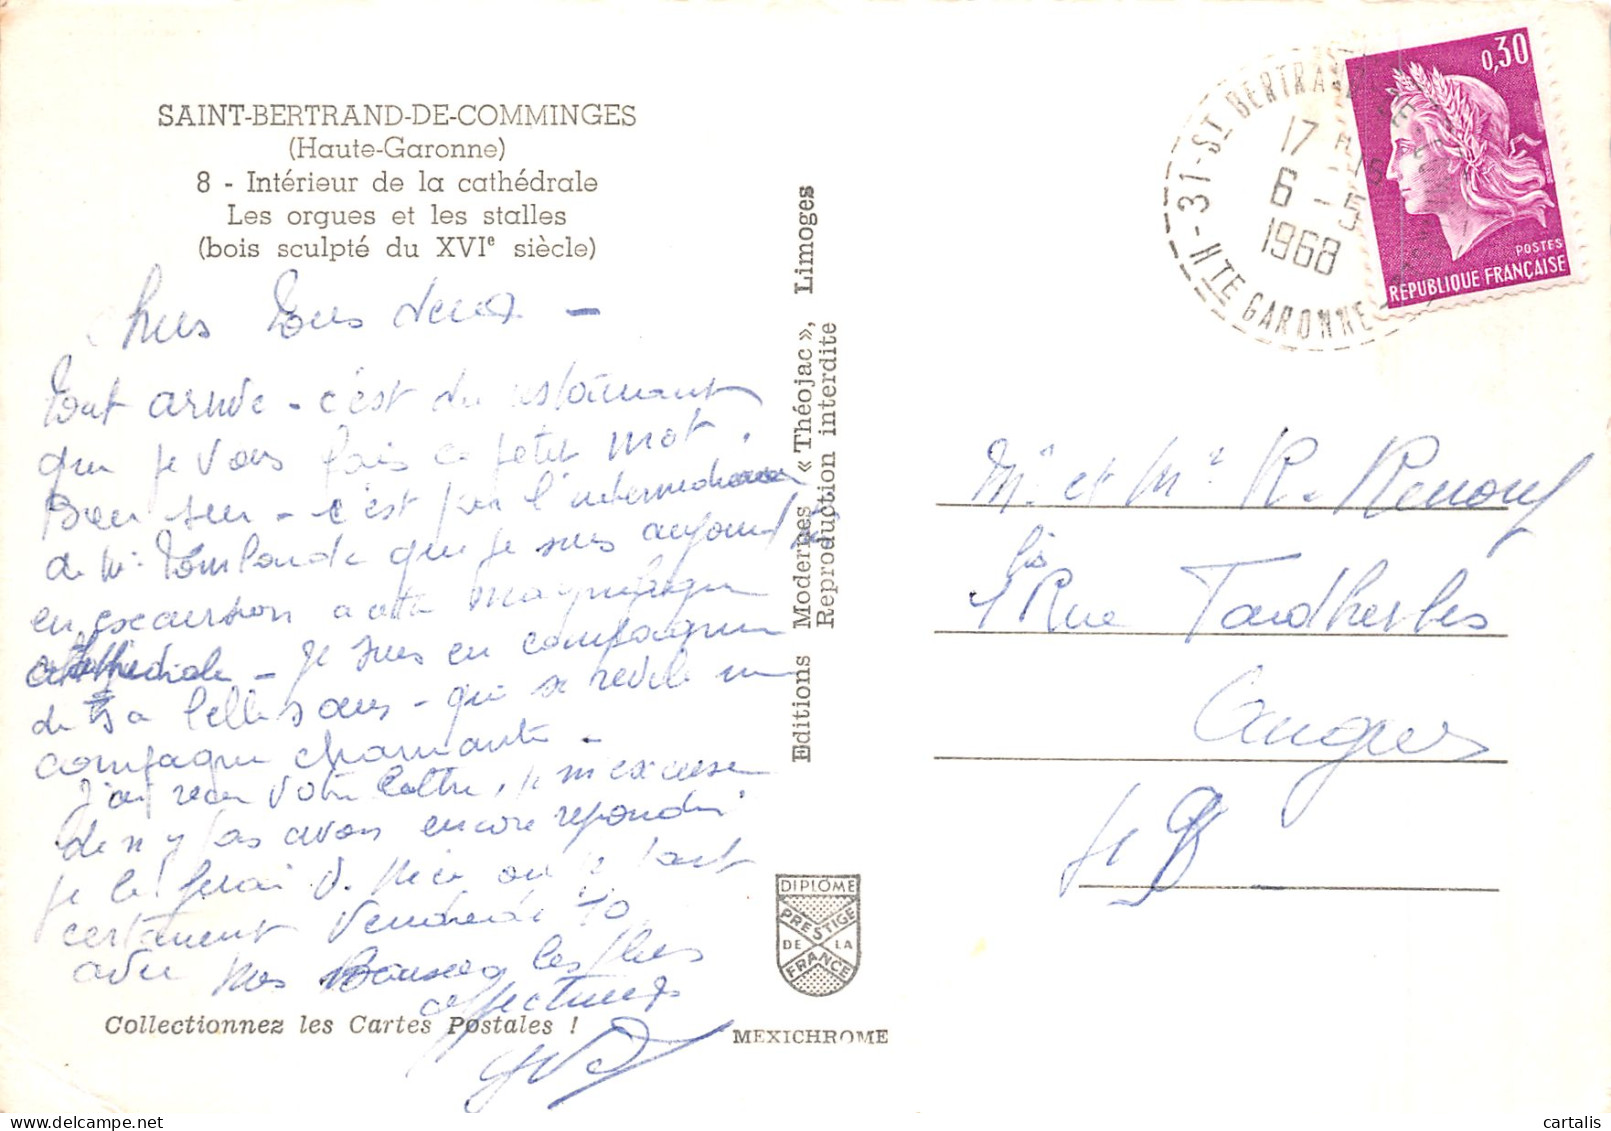 SAINT-BERTRAND-DE-COMMINGES
(Haute-Garonne)
8 - Intérieur de la cathédrale
Les orgues et les stalles
(bois sculpté du XVIe siècle)
Chers tous deux —
Tout arrive - c'est du restaurant
que je vous fais ce petit mot.
Bien sur - c'est par l'intermédiaire
de Mr que je suis aujourd'hui
en excursion a cette magnifique
cathédrale - je suis en compagnie
de sa belle soeur - qui se révèle une
compagne charmante -
J'ai reçu votre lettre, je m'excuse
de n'y pas avoir encore répondu
je le ferai d. Nice ou je
certainement Vendredi 10
avec mes Baisers les plus
affectueux
Collectionnez les Cartes Postales !
Editions Modernes « Théojac », Limoges
Reproduction interdite
DIPLÔME
PRESTIGE
DE LA
FRANCE
MEXICHROME
31-ST BERTRAND DE
HTE GARONNE
17 H 15
6 - 5
1968
0,30
POSTES
REPUBLIQUE FRANÇAISE
Mr et Me R. Renouf
1 bis Rue Tardherbes
Langres
cartalis
cartalis.com